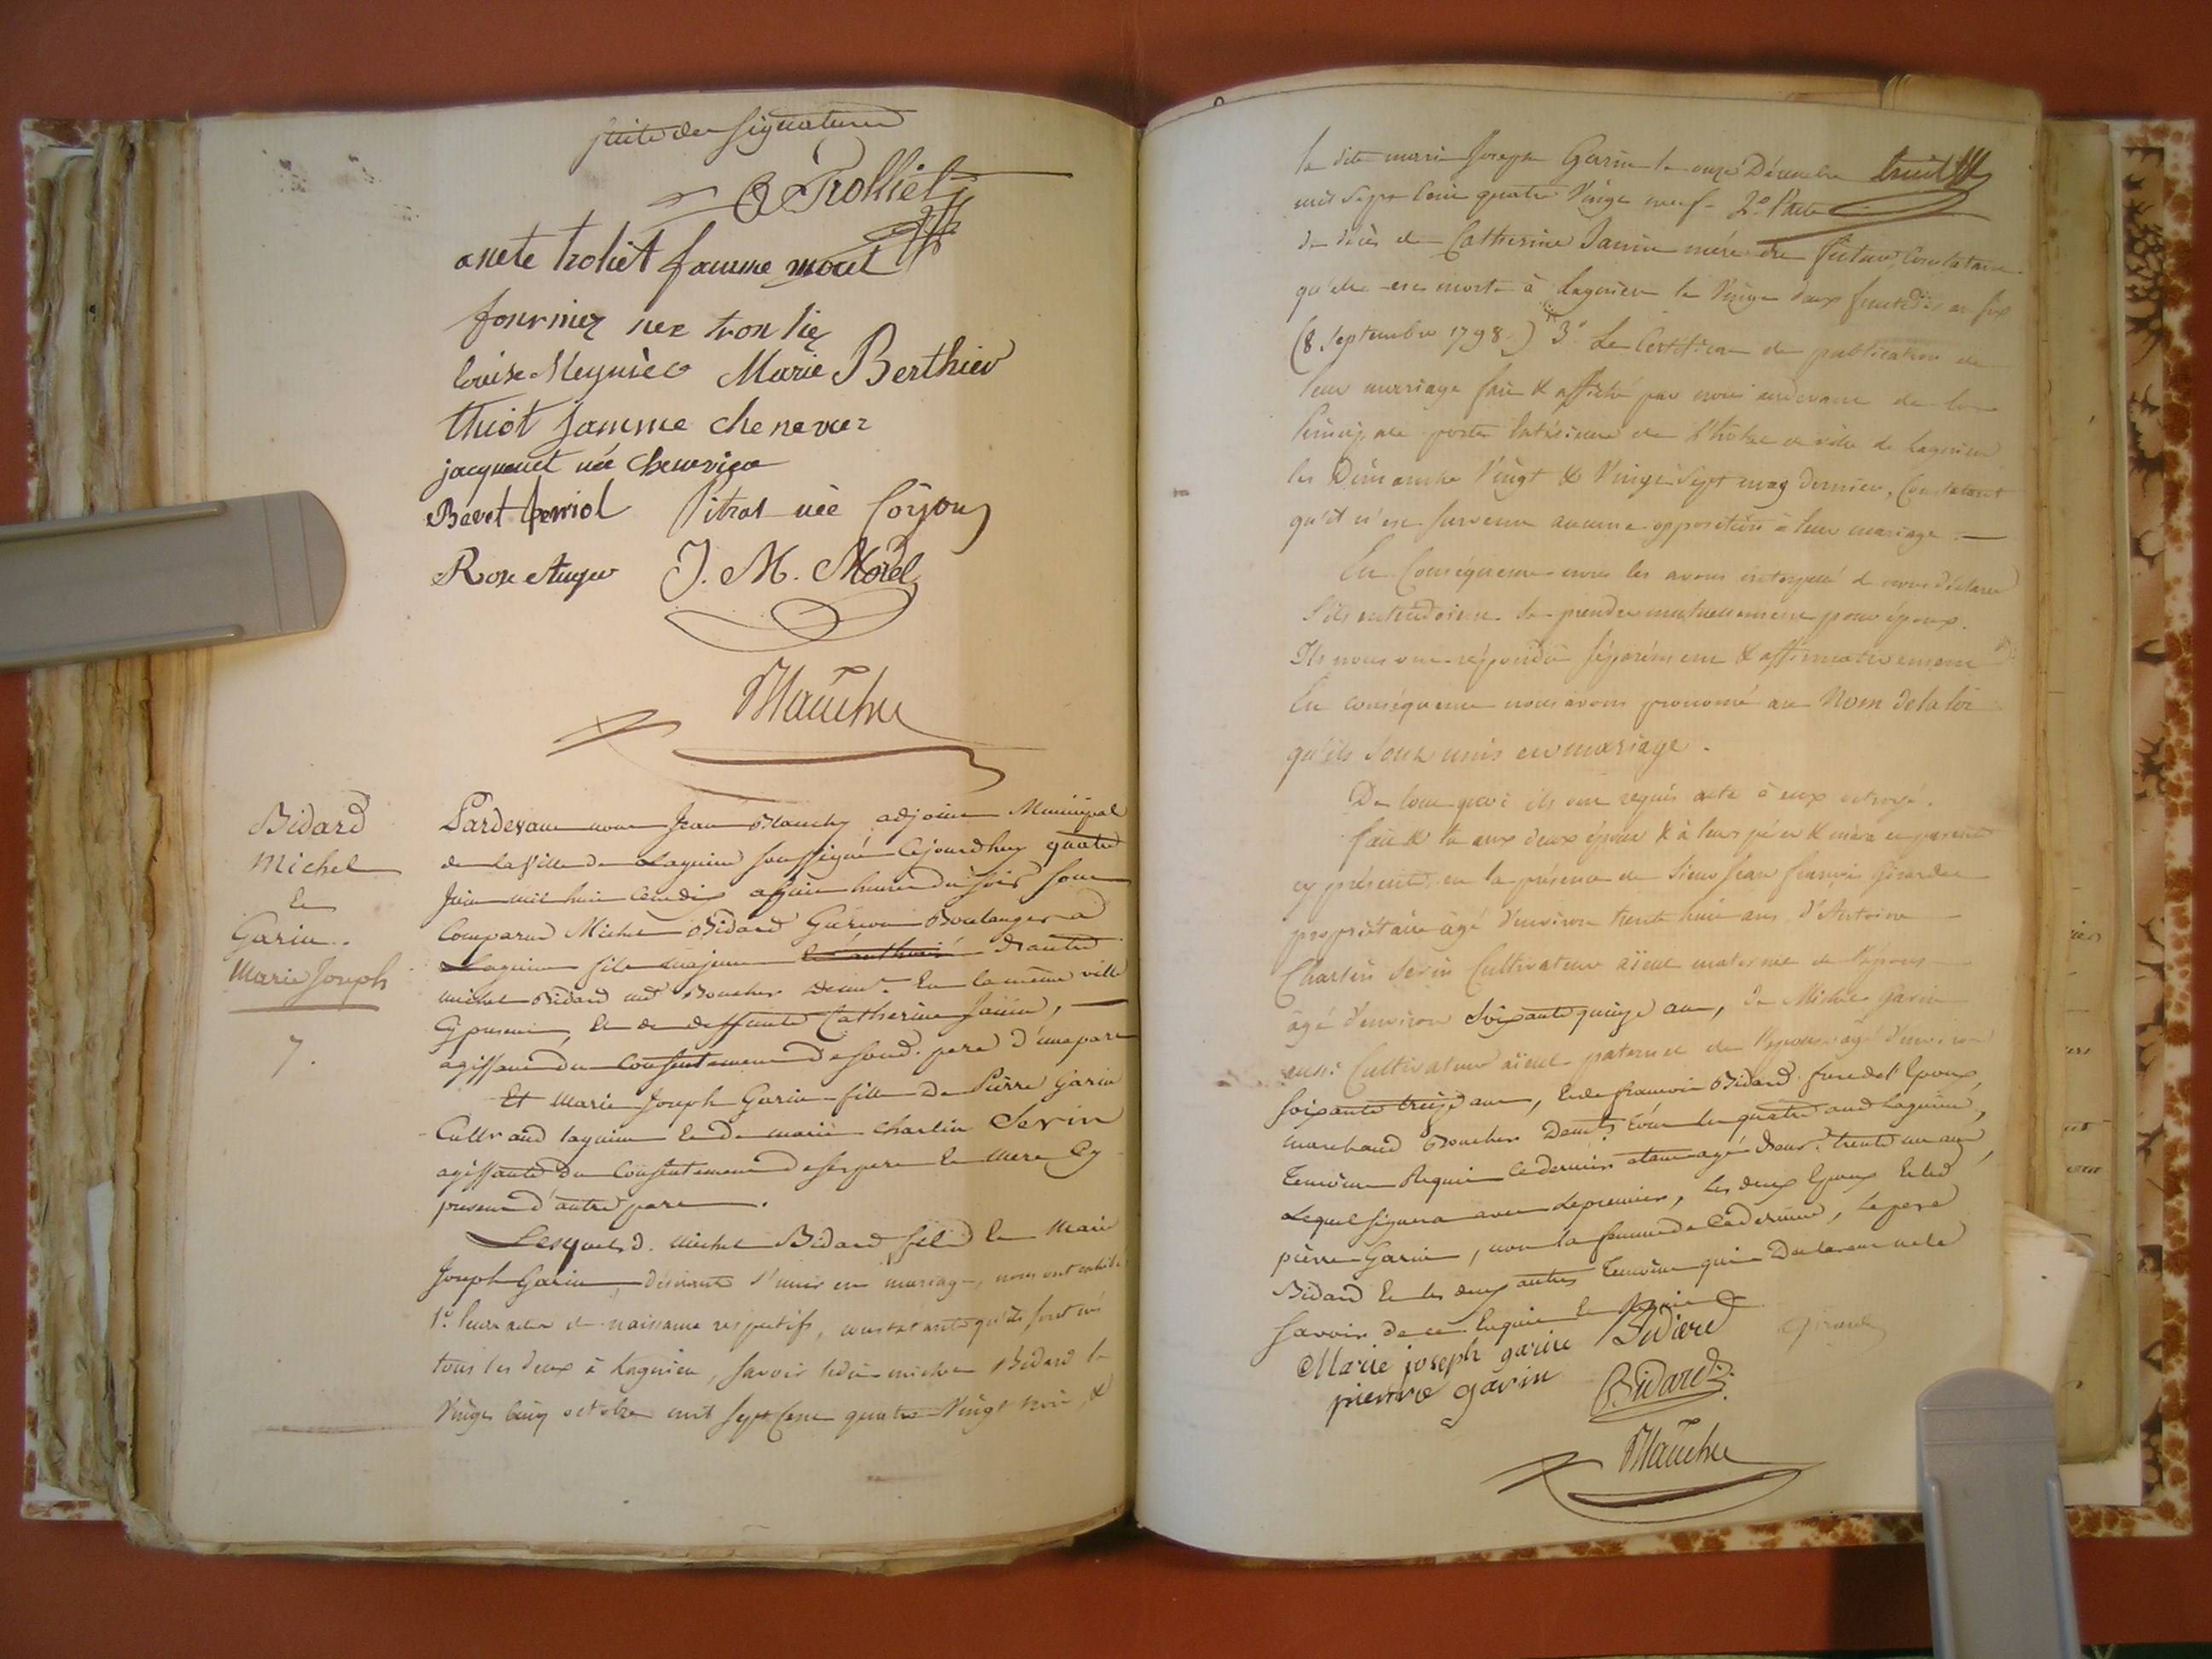 suite des signatures
Trolliet
anete troliet famme moret
fournier nee trolliez
louise Meynier Marie Berthier
thiot famme chenevaz
jacquemet née chenevier
Bevet ferriol Pitrat née Coijoux
Rose Auger J. M. Morel
Blanchy
Bidard
Michel
Et
Garin..
Marie Joseph
7.
Pardevant nous Jean Blanchy adjoint Municipal
de la Ville de Lagnieu soussigné Cejourdhuy quatre
Juin mil huit Cent dix a huit heures du soir sont
Comparus Michel Bidard Garçon Boulanger a
Lagnieu fils majeur d'autre
michel Bidard md Boucher demt. En la même ville
Cy present, Et de deffunte Catherine Janin,
agissant du Consentement de sond. pere d'une part
Et Marie Joseph Garin fille de Pierre Garin
Cultr aud lagnieu Et de marie Charlin Serin
agissante du Consentement de ses pere Et Mere Cy
present d'autre part.
Lesquels d. Michel Bidard fils Et Marie
Joseph Garin, désirants s'unir en mariage, nous ont exhibé
1.° leurs actes de naissance respectifs, constatants qu'ils sont nés
tous les deux à Lagnieu, savoir ledit michel Bidard le
Vingt Cinq octobre mil sept Cent quatre Vingt trois, &
la dite marie Joseph Garin le onze Décembre
mil sept Cent quatre Vingt neuf. 2.° l'acte
de décès de Catherine Janin mère du futur, Constatant
qu'elle est morte à Lagnieu le Vingt deux fructidor an six
(8 Septembre 1798.) 3.° Le Certificat de publication de
leur marriage fait & affiché par nous audevant de la
principale porte Extérieure de l'hôtel de ville de Lagnieu
les Dimanche Vingt & Vingt Sept may dernier, Constatant
qu'il n'est survenu aucune opposition à leur mariage.
En Conséquence nous les avons interpellé de nous déclarer
s'ils entendoient se prendre mutuellement pour époux.
Ils nous ont répondu séparément & affirmativement
En conséquence nous avons prononcé au Nom de la loi
qu'ils sont unis en mariage.
De tout quoi ils ont requis acte à eux octroyé.
fait & lu aux deux époux & à leurs père & mère
cy présents, en la présence de Sieur Jean françois Girardet
propriétaire âgé d'environ trente huit ans, d'Antoine
Charlin Serin Cultivateur aïeul maternel de l'épouse
âgé d'environ Soixante quinze ans, de Michel Garin
aussi Cultivateur aïeul paternel de l'épouse âgé d'environ
soixante treize ans, Et de francois Bidard frere de l'Epoux,
marchand Boucher Demts. tous les quatre aud Lagnieu,
Temoins Requis Ce dernier etant agé d'env. trente un ans,
Lequel signera avec Le premier, les deux Epoux Et led
pierre Garin, non la femme de Ce dernier, Le pere
Bidard Et les deux autres Temoins qui Declarent ne le
savoir de ce Enquis Et Requis
Marie joseph garin Bidard
pierre garin Bidard
Blanchy